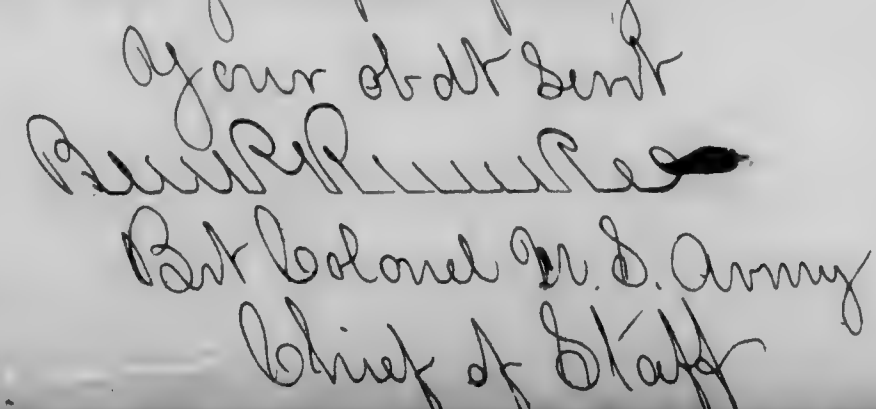 Your obdt Servt
Benj P Runkle
Bvt Colonel U. S. Army
Chief of Staff